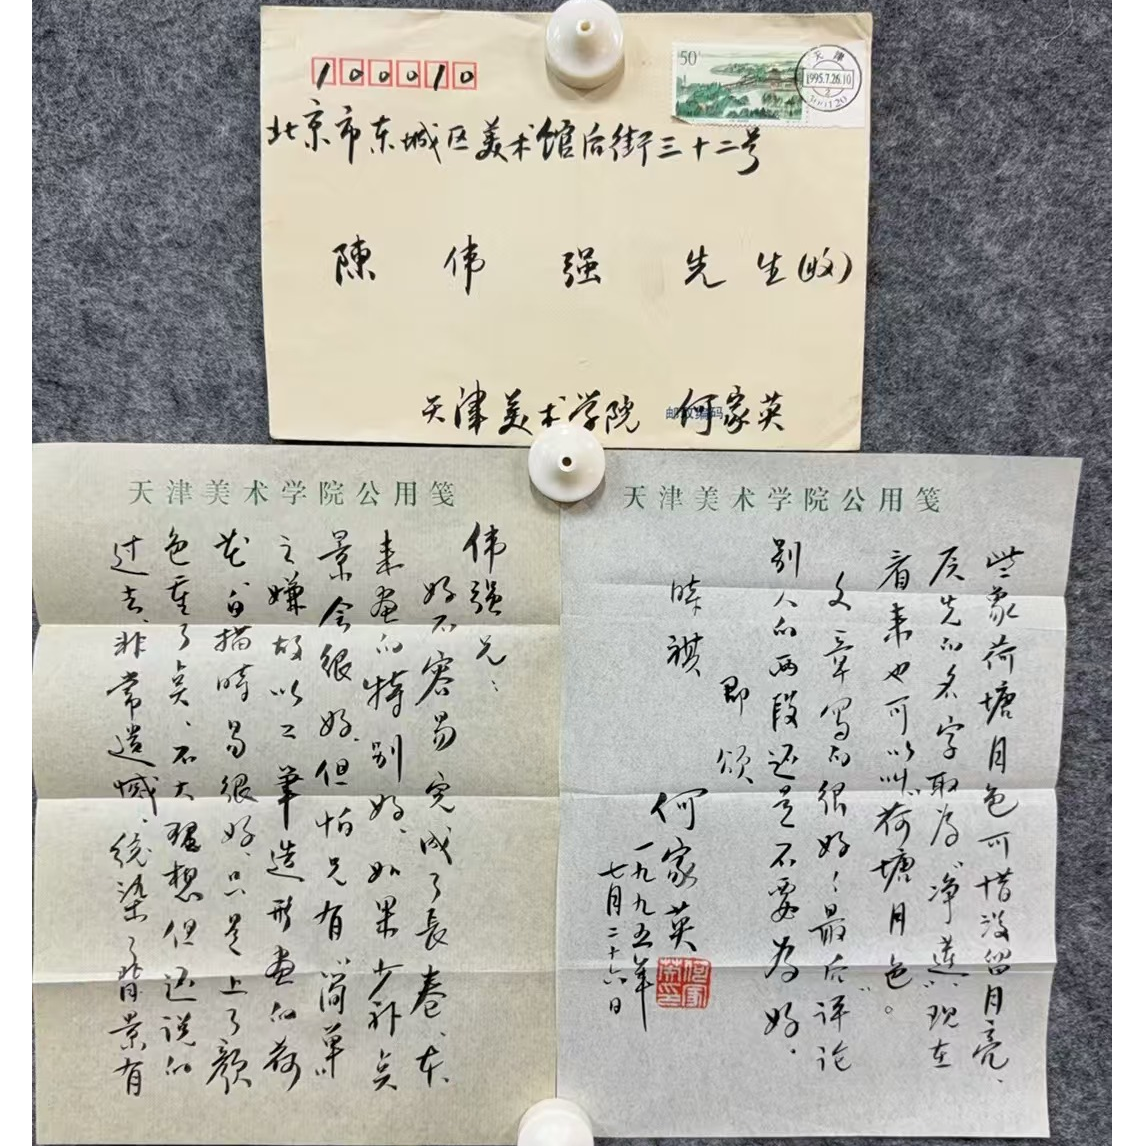 100010
50
天津
1995.7.26.10
北京市东城区美术馆后街三十二号
陳伟强先生(收)
邮政编码
天津美术学院 何家英
天津美术学院公用笺
伟强兄:
好不容易完成了長卷、本
来画的特别好、如果少补点
景会很好、但怕兄有“简单”
之嫌故以工筆造形画的荷
花、白描時易很好、只是上了颜
色重了点、不大理想但还说的
过去、非常遗憾、统染了背景有
天津美术学院公用笺
些象荷塘月色可惜没留月亮、
辰先的名字取为“净莲”、现在
看来也可以叫“荷塘月色”。
文章写的很好!最后评论
别人的两段还是不要为好.
即颂
暽祺
何家英
一九九五年
七月二十六日
何家英印